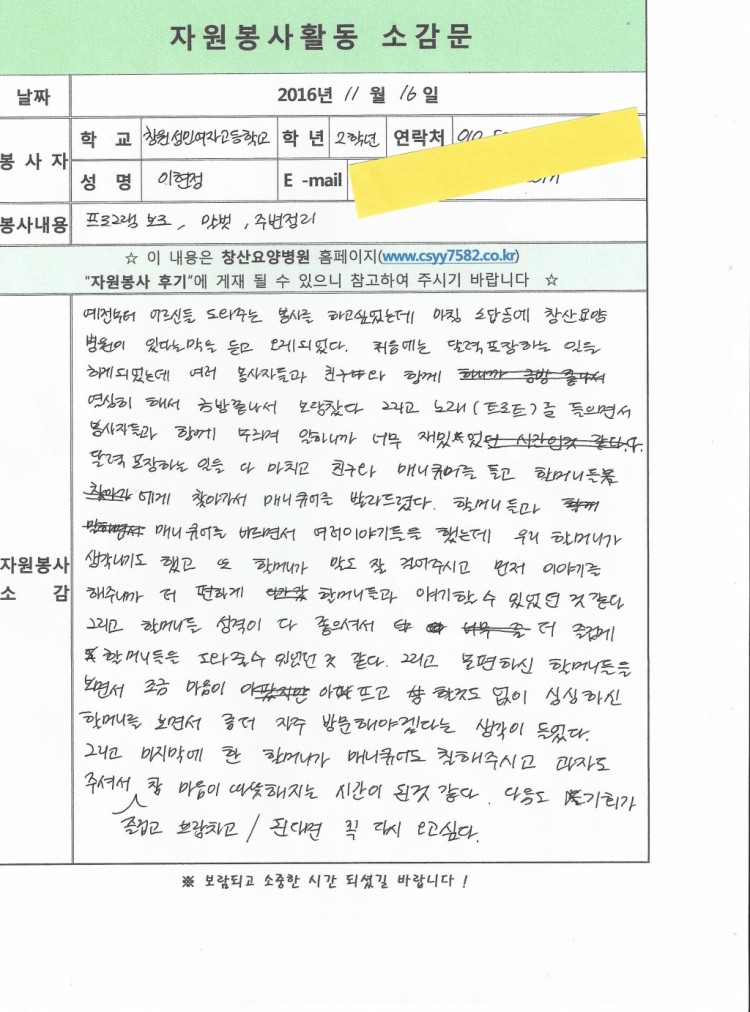 자원봉사활동 소감문
날짜 2016년 11 월 16 일
봉사자 학 교 창원성민여자고등학교 학 년 2학년 연락처 010
성 명 이현정 E -mail
봉사내용 프로그램 보조, 말벗, 주변정리
☆ 이 내용은 창산요양병원 홈페이지(www.csyy7582.co.kr)
"자원봉사 후기"에 게재 될 수 있으니 참고하여 주시기 바랍니다 ☆
자원봉사 소 감
예전부터 어르신들 도와주는 봉사를 하고싶었는데 마침 소답동에 창산요양
병원이 있다는말을 듣고 오게되었다. 처음에는 달력포장하는 일을
하게되었는데 여러 봉사자들과 친구와 함께 하니까 금방 끝나서
열심히 해서 금방끝나서 보람찼다 그리고 노래(트로트)를 들으면서
봉사자들과 함께 일하니까 너무 재밌었던 시간인것 같다.
달력 포장하는 일을 다 마치고 친구와 매니큐어를 들고 할머니들
찾아가 에게 찾아가서 매니큐어를 발라드렸다. 할머니들과
매니큐어를 바르면서 여러이야기들을 했는데 우리 할머니가
생각나기도 했고 또 할머니가 말도 잘 걸어주시고 먼저 이야기를
해주니까 더 편하게 할머니들과 얘기할수 있었던 것같다
그리고 할머니들 성격이 다 좋으셔서 너무 더 즐겁게
할머니들을 도와줄수 있었던 것 같다. 그리고 몸편하신 할머니들을
보면서 조금 마음이 아팠지만 아팠고 할것도 없이 심심하신
할머니를 보면서 좀더 자주 방문해야겠다는 생각이 들었다.
그리고 마지막에 한 할머니가 매니큐어도 칠해주시고 과자도
주셔서 참 마음이 따뜻해지는 시간이 된것 같다. 다음도 기회가
즐겁고 보람차고 / 된다면 꼭 다시 오고싶다.
※ 보람되고 소중한 시간 되셨길 바랍니다 !